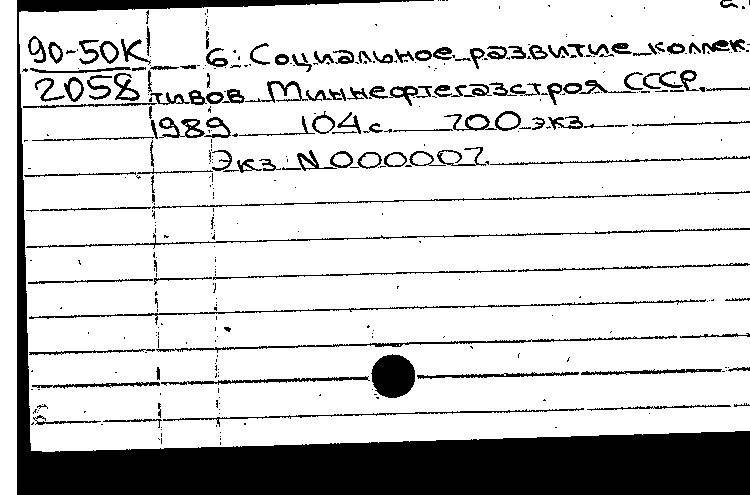 90-50К 6: Социальное развитие коллек-
2058 тивов Миннефтегазстроя СССР.
1989. 104 с. 700 экз.
Экз N 000007.
6